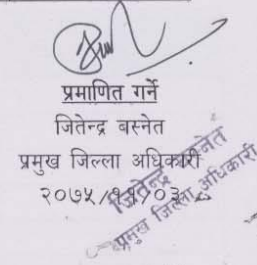 प्रमाणित गर्ने
जितेन्द्र बस्नेत
प्रमुख जिल्ला अधिकारी
२०७५/११/०३
जितेन्द्र बस्नेत
प्रमुख जिल्ला अधिकारी